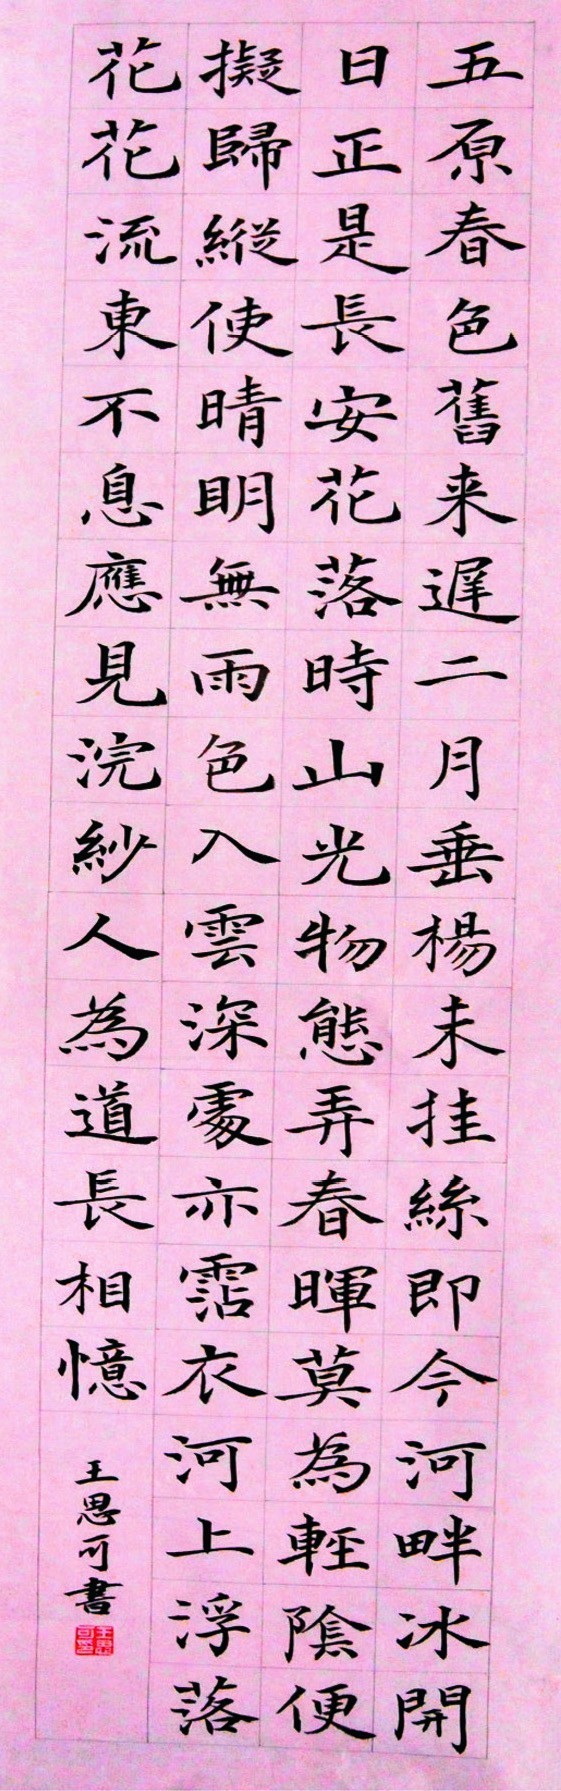 五原春色舊来遲二月垂楊未挂絲即今河畔冰開
日正是長安花落時山光物態弄春暉莫為輕陰便
擬歸縱使晴明無雨色入雲深處亦霑衣河上浮落
花花流東不息應見浣紗人為道長相憶
王思可書
王思可印